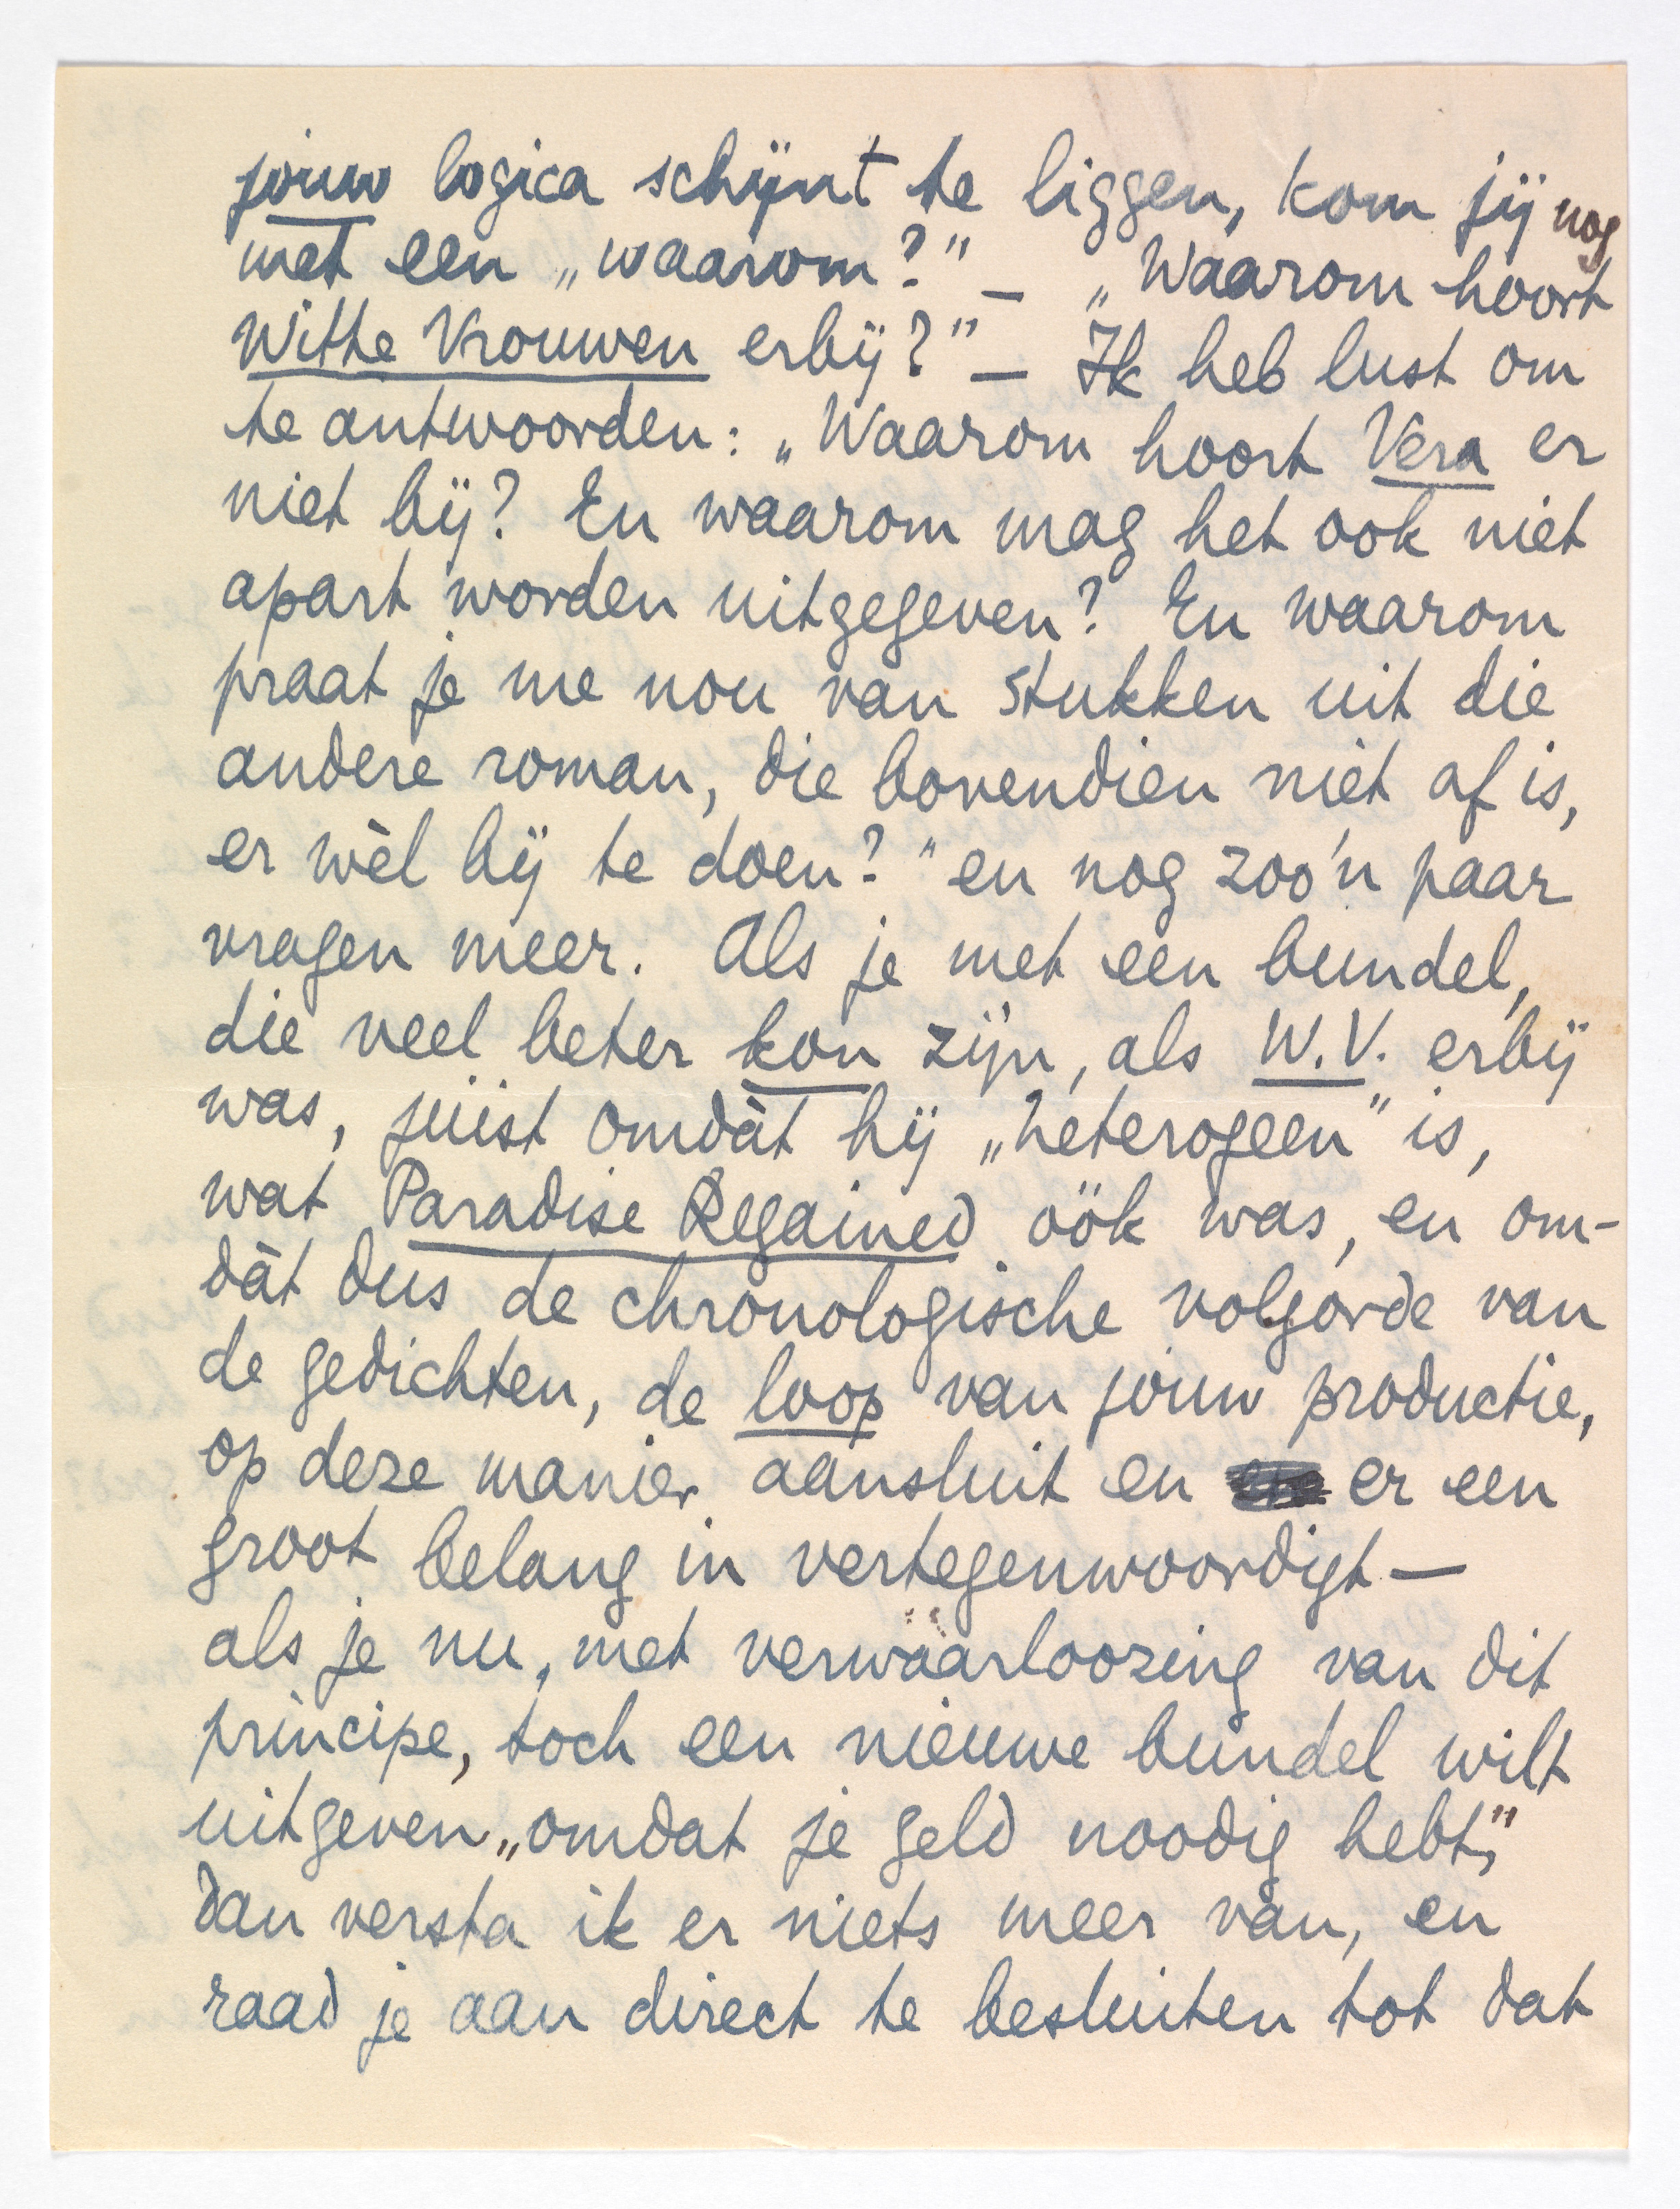 jouw logica schijnt te liggen, kom jij nog
met een „waarom?” – „Waarom hoort
Witte Vrouwen erbij?” – Ik heb lust om
te antwoorden: „Waarom hoort Vera er
niet bij? En waarom mag het ook niet
apart worden uitgegeven? En waarom
praat je me nou van stukken uit die
andere roman, die bovendien niet af is,
er wèl bij te doen?” en nog zoo'n paar
vragen meer. Als je met een bundel,
die veel beter kon zijn, als W.V. erbij
was, juist omdàt hij „heterogeen” is,
wat Paradise Regained óók was, en om-
dàt dus de chronologische volgorde van
de gedichten, de loop van jouw productie,
op deze manier aansluit en er een
groot belang in vertegenwoordigt —
als je nu, met verwaarloozing van dit
principe, toch een nieuwe bundel wilt
uitgeven „omdat je geld noodig hebt,”
dan versta ik er niets meer van, en
raad je aan direct te besluiten tot dat